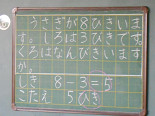 うさぎが8ひきいま
す。しろは3びきです。
くろはなんびきいます
か。
しき 8-3=5
こたえ 5ひき